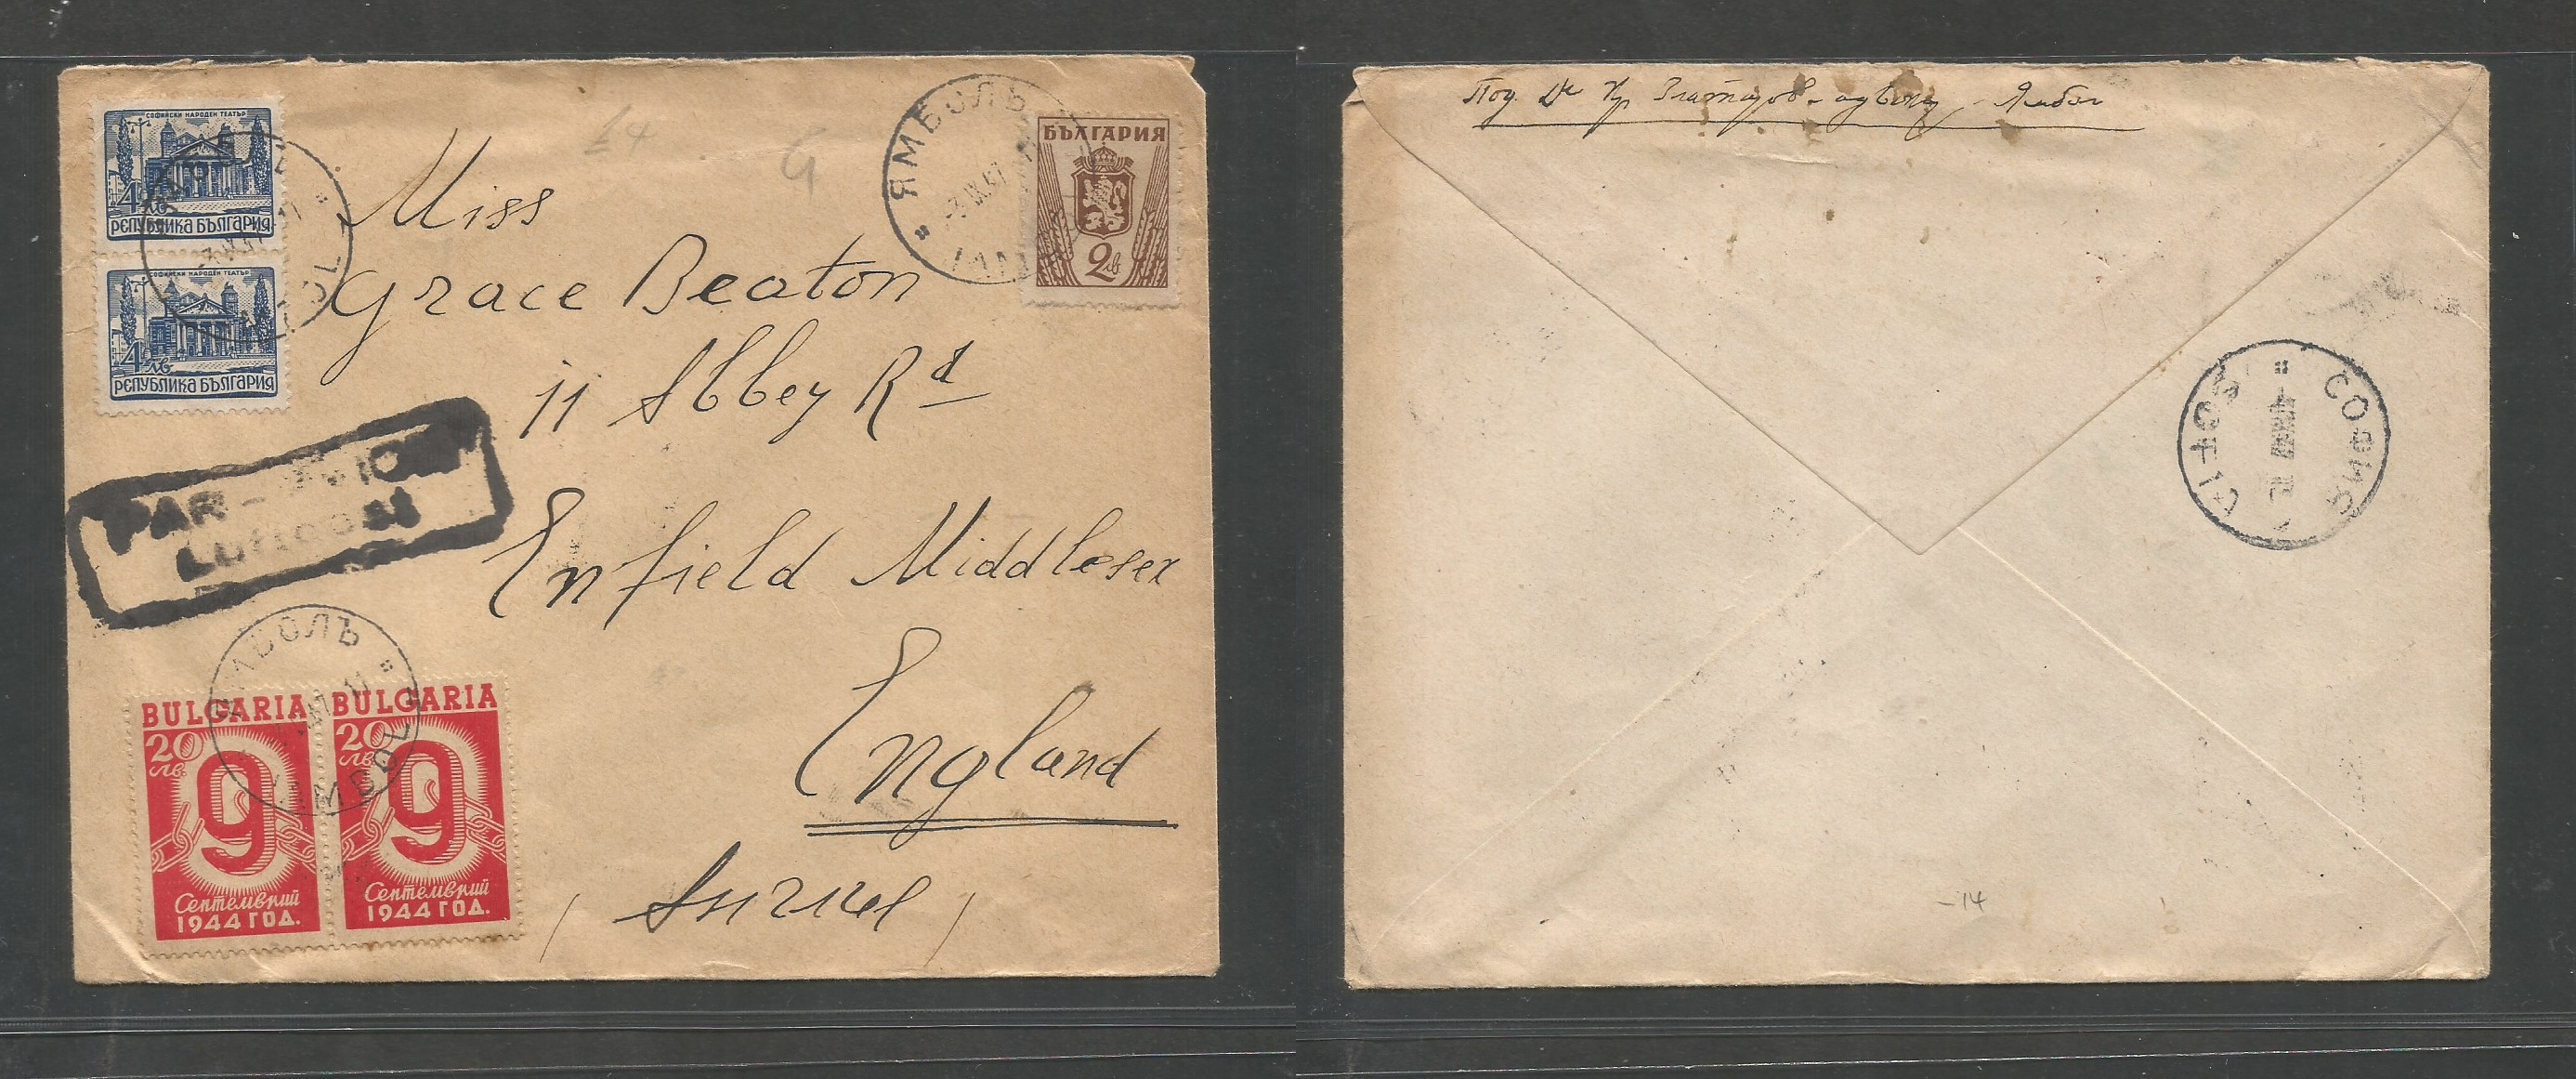 СОФИЙСКИ НАРОДЕН ТЕАТЪР
4 лв
РЕПУБЛИКА БЪЛГАРИЯ
СОФИЙСКИ НАРОДЕН ТЕАТЪР
4 лв
РЕПУБЛИКА БЪЛГАРИЯ
ЯМБОЛЪ
БЪЛГАРИЯ
2 лв
Miss
Grace Beaton
11 Abbey Rd
Enfield Middlesex
England
PAR-AVION
Luftpost
ЯМБОЛЪ
YAMBOL
BULGARIA
20 лв.
9
Септемврий
1944 ГОД.
BULGARIA
20 лв.
9
Септемврий
1944 ГОД.
Под. Кр Златаров - адвокат - Ямбол
СОФИЯ
SOFIA
-14